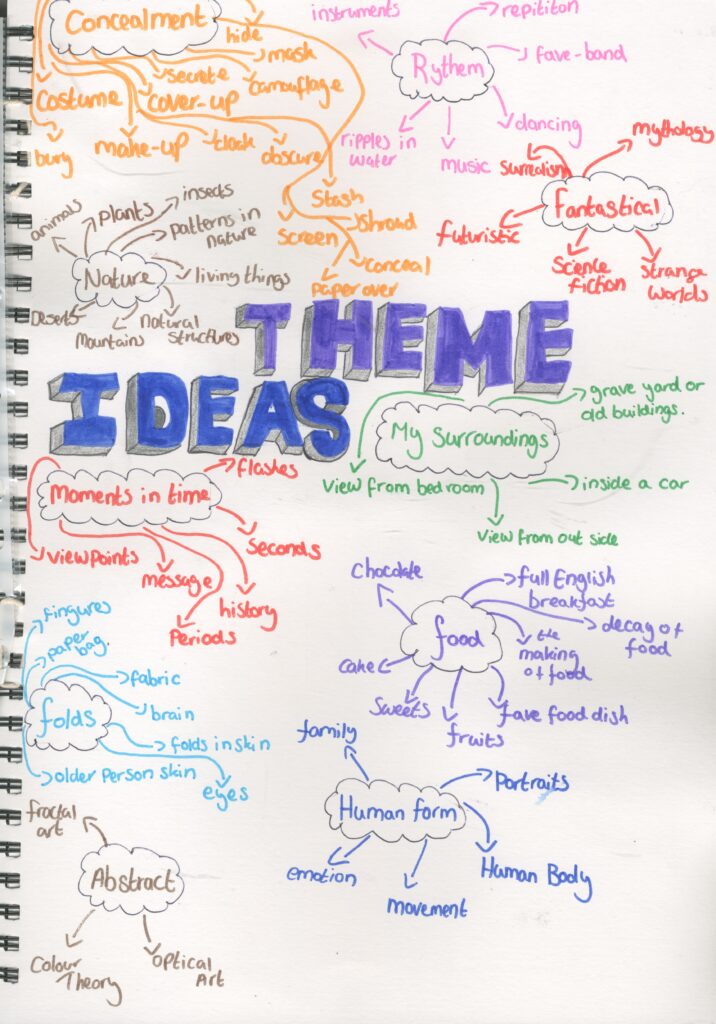 Concealment
hide
mask
secrete
camouflage
costume
cover-up
bury
make-up
cloak
obscure
Stash
Shroud
Screen
conceal
paper over
instruments
repititon
Rythem
fave-band
ripples in
water
music
dancing
mythology
Surrealism
fantastical
futuristic
Science
fiction
Strange
worlds
animals
plants
insects
patterns in
nature
Nature
living things
Deserts
Mountains
Natural
Structures
THEME
IDEAS
My Surroundings
grave yard or
old buildings.
View from bedroom
inside a car
view from out side
Moments in time
flashes
Seconds
viewpoints
message
history
Periods
chocolate
full English
breakfast
food
decay of
food
the
making
of food
cake
Sweets
fruits
fave food dish
fingures
paper
bag.
fabric
folds
brain
folds in skin
older Person skin
eyes
family
Portraits
Human form
emotion
movement
Human Body
fractal
art
Abstract
Colour
Theory
Optical
Art